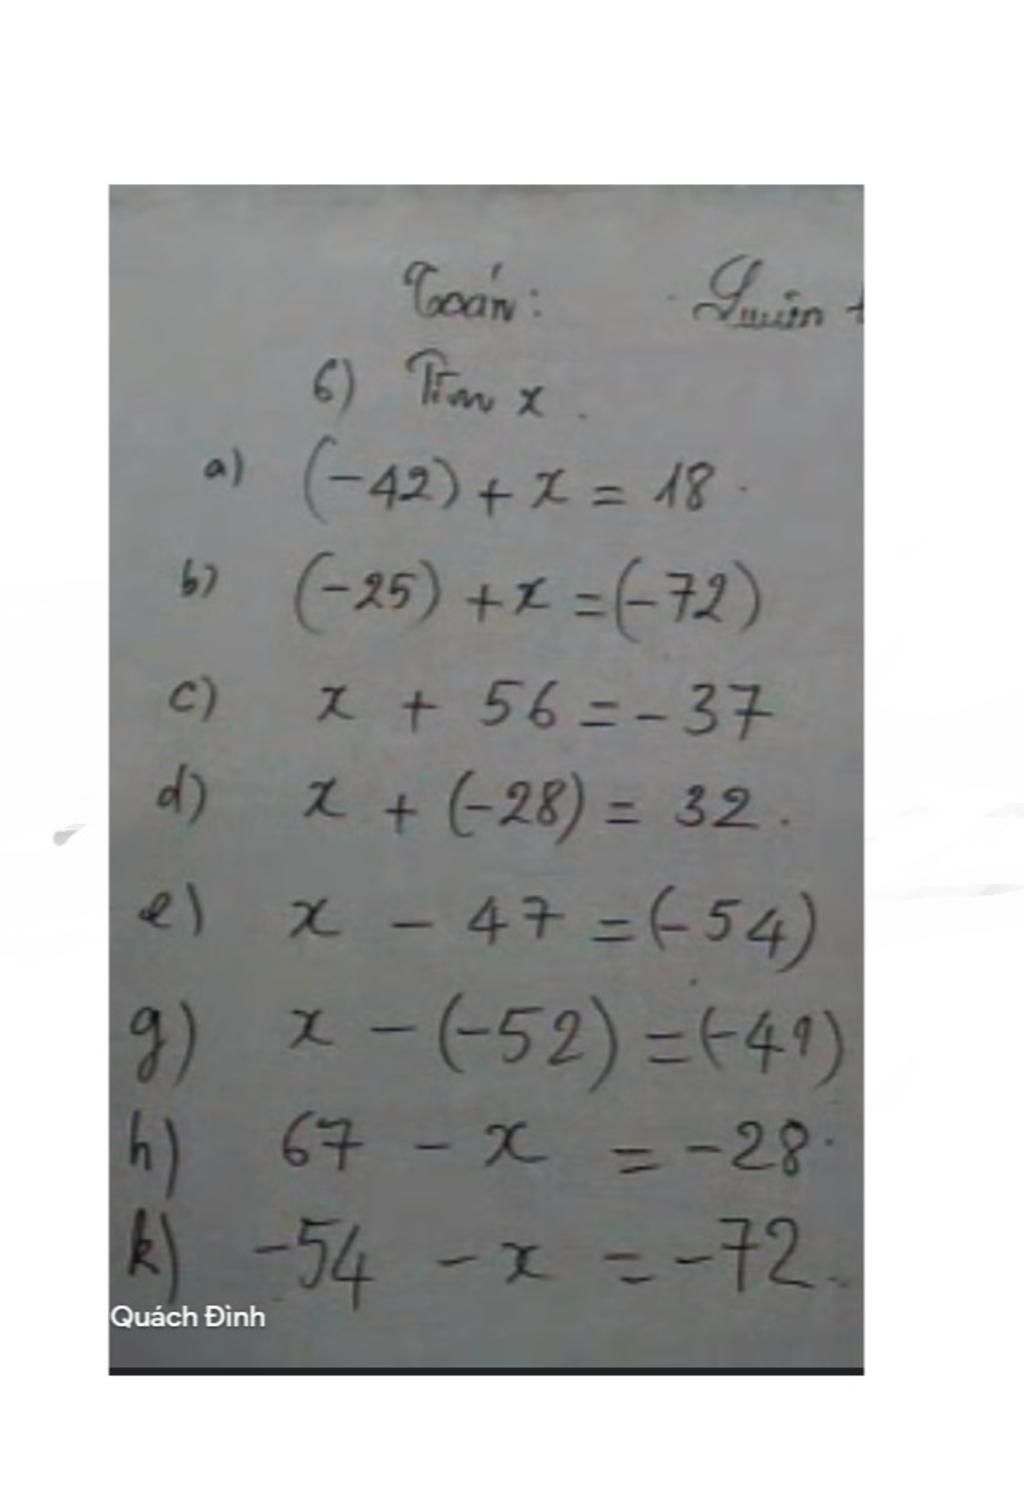 Toán: Luyện t
6) Tìm x.
a) (-42) + x = 18.
b) (-25) + x = (-72)
c) x + 56 = - 37
d) x + (-28) = 32.
e) x - 47 = (-54)
g) x - (-52) = (-41)
h) 67 - x = -28.
k) -54 - x = -72.
Quách Đình